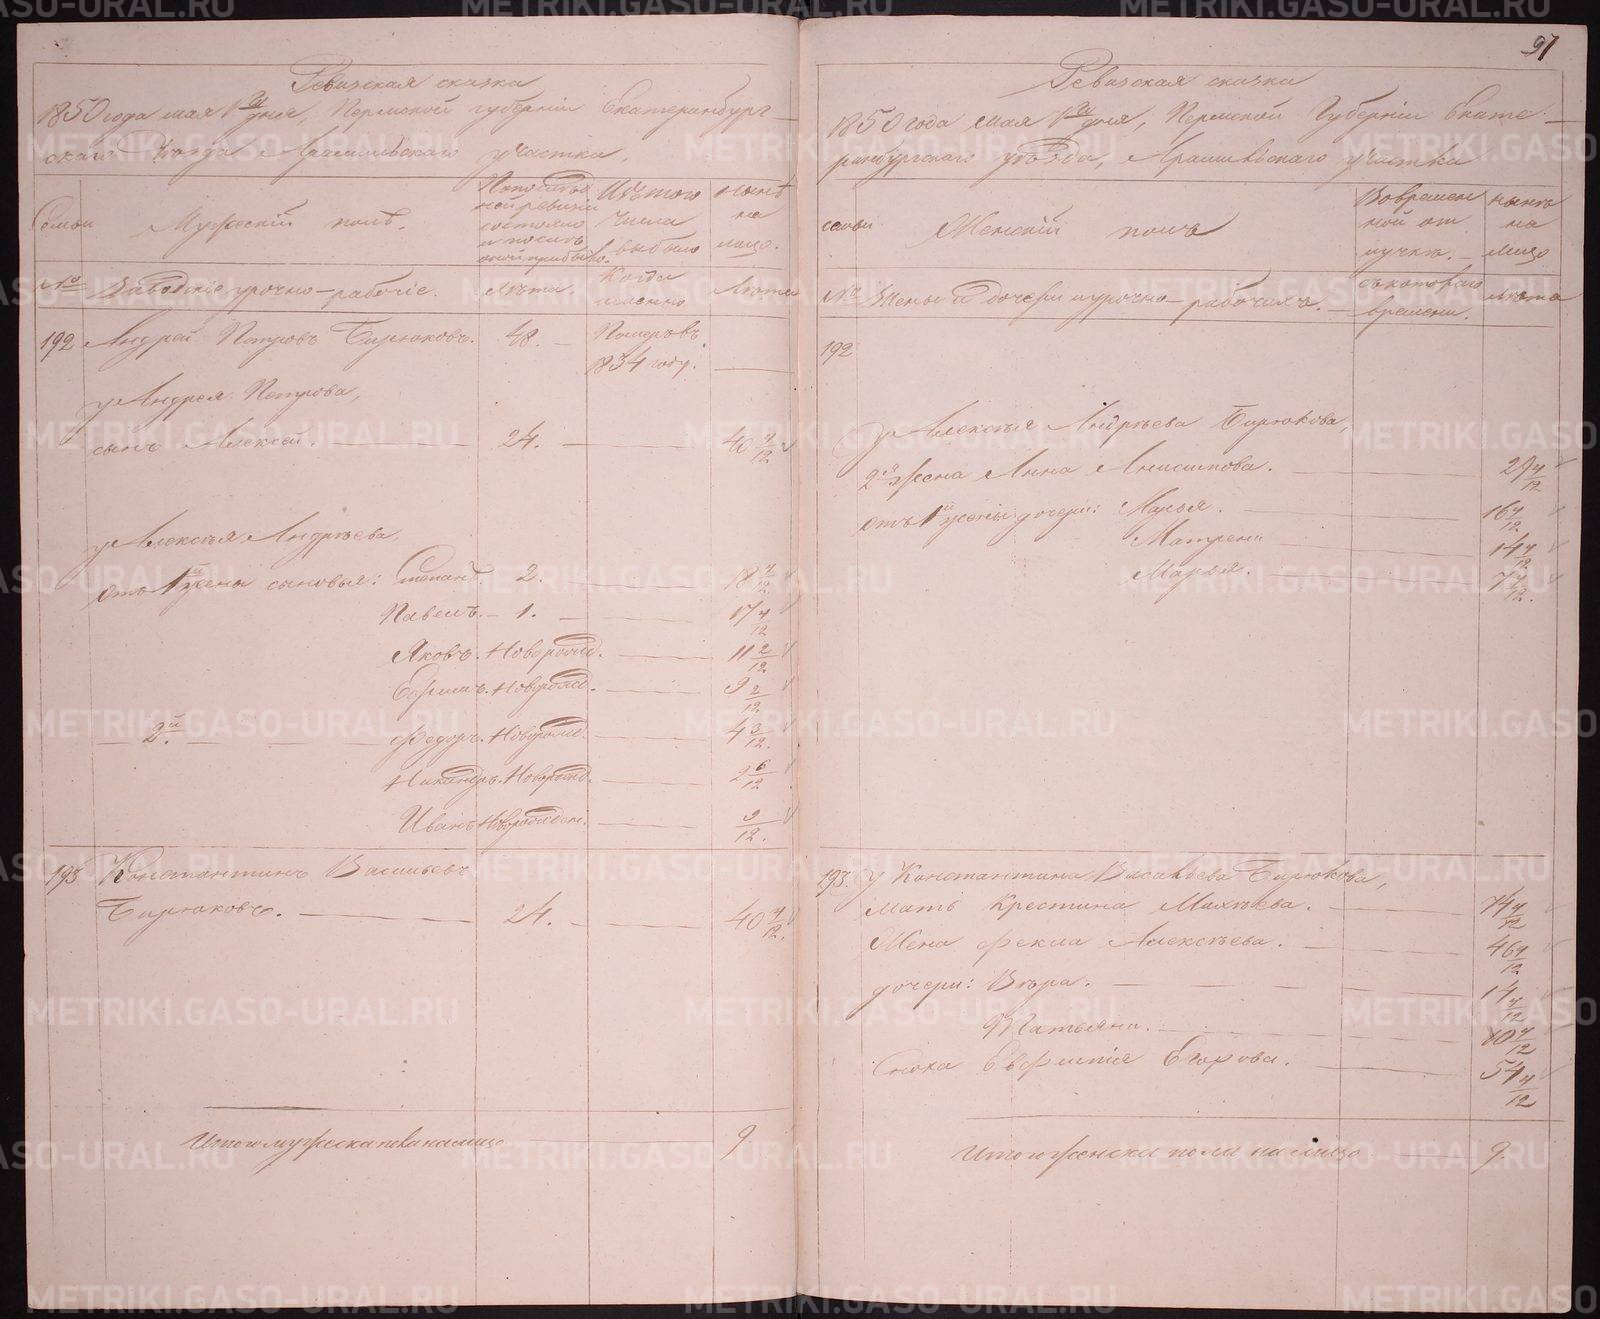 91
Ревизская сказка
1850 года мая 1го дня, Пермской губернiи Екатеринбург-
скаго Уѣзда Арамильскаго участка,
Семьи
Мужескiй полъ.
По послѣд
ней ревизiи
состояло
и послѣ
оной прибыло.
Изъ того
числа
выбыло
нынѣ
на
лицо.
№
Заводскiе урочно-рабочiе.
Лѣта.
Когда
именно
Лѣта
192
Андрей Петровъ Бирюковъ. 48. —
Померъ въ
1834 году.
у Андрея Петрова,
сынъ Алексей. 24. — 40 4/12
у Алексѣя Андрѣева,
отъ 1й жены сыновья: Степанъ. 2. 18 4/12
Павелъ. — 1. — 17 4/12
Яковъ. Новорожд. 11 2/12
Ефимъ. Новорожд. 9 2/12
2й Федоръ. Новорожд. 4 3/12
Никандръ. Новорожд. 2 6/12
Иванъ Новорожден. 9/12.
193 Константинъ Васильевъ
Бирюковъ. — 24. — 40 4/12.
Итого мужеска пола на лицо 9
Ревизская сказка
1850 года мая 1го дня, Пермской Губернiи Екате-
ринбургскаго уѣзда, Арамильскаго участка
семьи
Женскiй полъ
Во времен
ной от
лучкѣ. —
нынѣ
на
лицо
№
Жены и дочери урочно-рабочихъ. —
съ котораго
времени.
лѣта
192
у Алексѣя Андрѣева Бирюкова,
2я жена Анна Анисимова. 29 4/12
отъ 1й жены дочери: Марья. 16 4/12
Матрена 14 4/12
Марья. 7 4/12.
193. у Константина Васильева Бирюкова,
Мать Крестина Михѣева. 74 4/12
Жена Фекла Алексѣева. 46 4/12
дочери: Вѣра. 14 4/12
Татьяна. 10 4/12
Сноха Евфимiя Егорова. 54 4/12
Итого женска пола на лицо 9.
METRIKI.GASO-URAL.RU